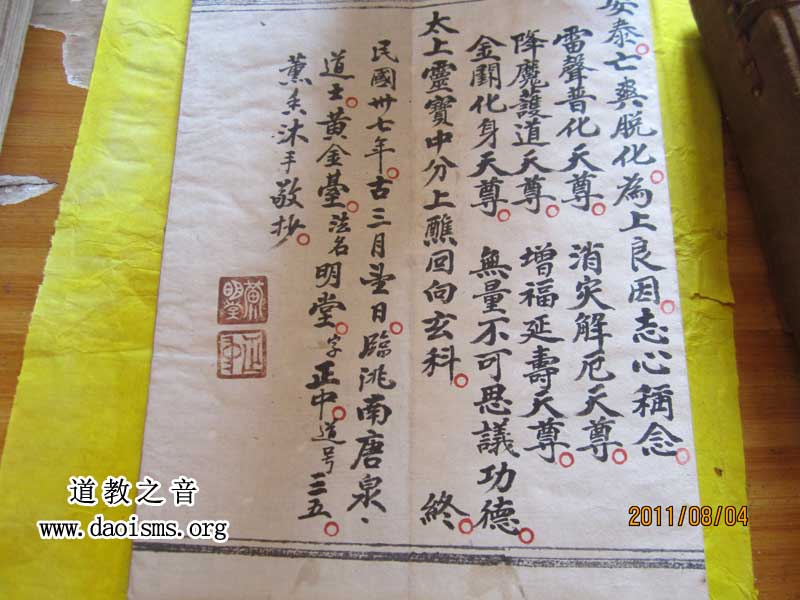 安泰。亡與脫化。為上良因。志心稱念。
雷聲普化天尊。 消灾解厄天尊。
降魔護道天尊。 增福延壽天尊。
金闕化身天尊。 無量不可思議功德。
太上靈寶中分上醮回向玄科。 終。
民國卅七年。古三月望日。臨洮南唐泉、
道士。黃金臺。法名明堂。字正中。道号三五。
薰香沐手敬抄。
道教之音
www.daoisms.org
2011/08/04